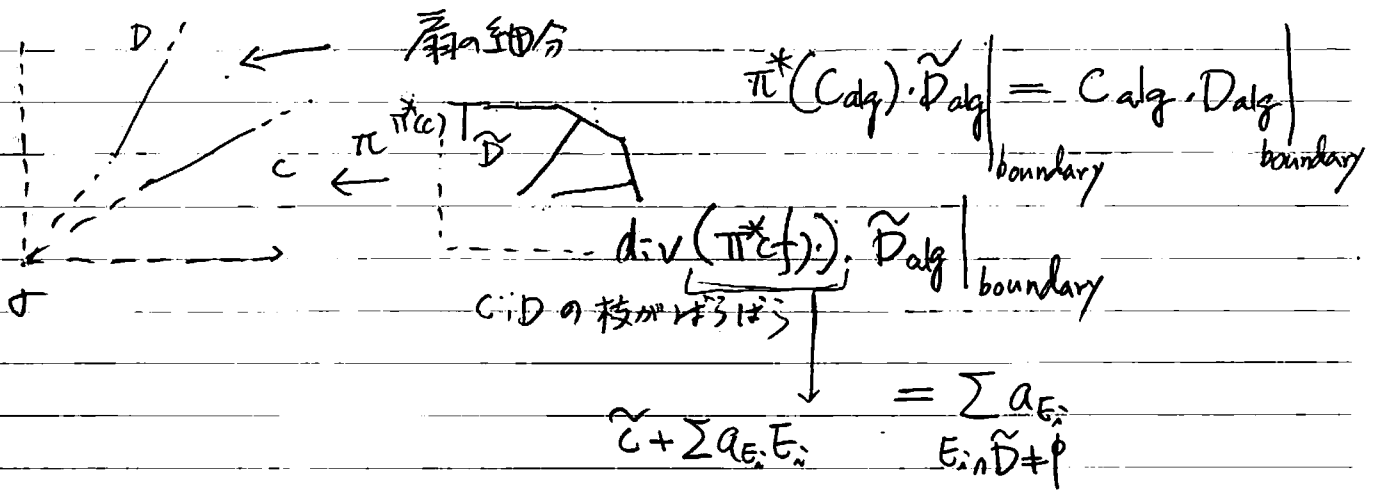 D
扇の細分
π*(C_alg)・D̃_alg|_boundary = C_alg・D_alg|_boundary
π*(C)
D̃
π
C
div(π*(f))・D̃_alg|_boundary
σ
C,Dの枝がばらばら
= Σ a_{E_i}
C̃ + Σ a_{E_i} E_i
E_i ∩ D̃ ≠ φ